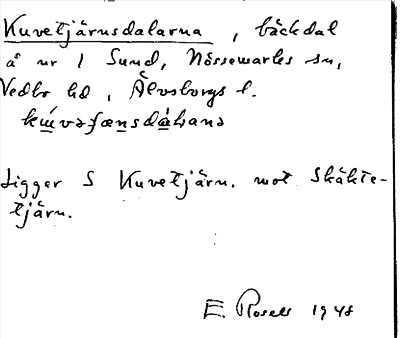 Kuvetjärnsdalarna, bäckdal
å nr 1 Sund, Nössemarks sn,
Vedbo hd, Älvsborgs l.
Ligger S Kuvetjärn. mot Skäkte-
tjärn.
E. Rosell 1948